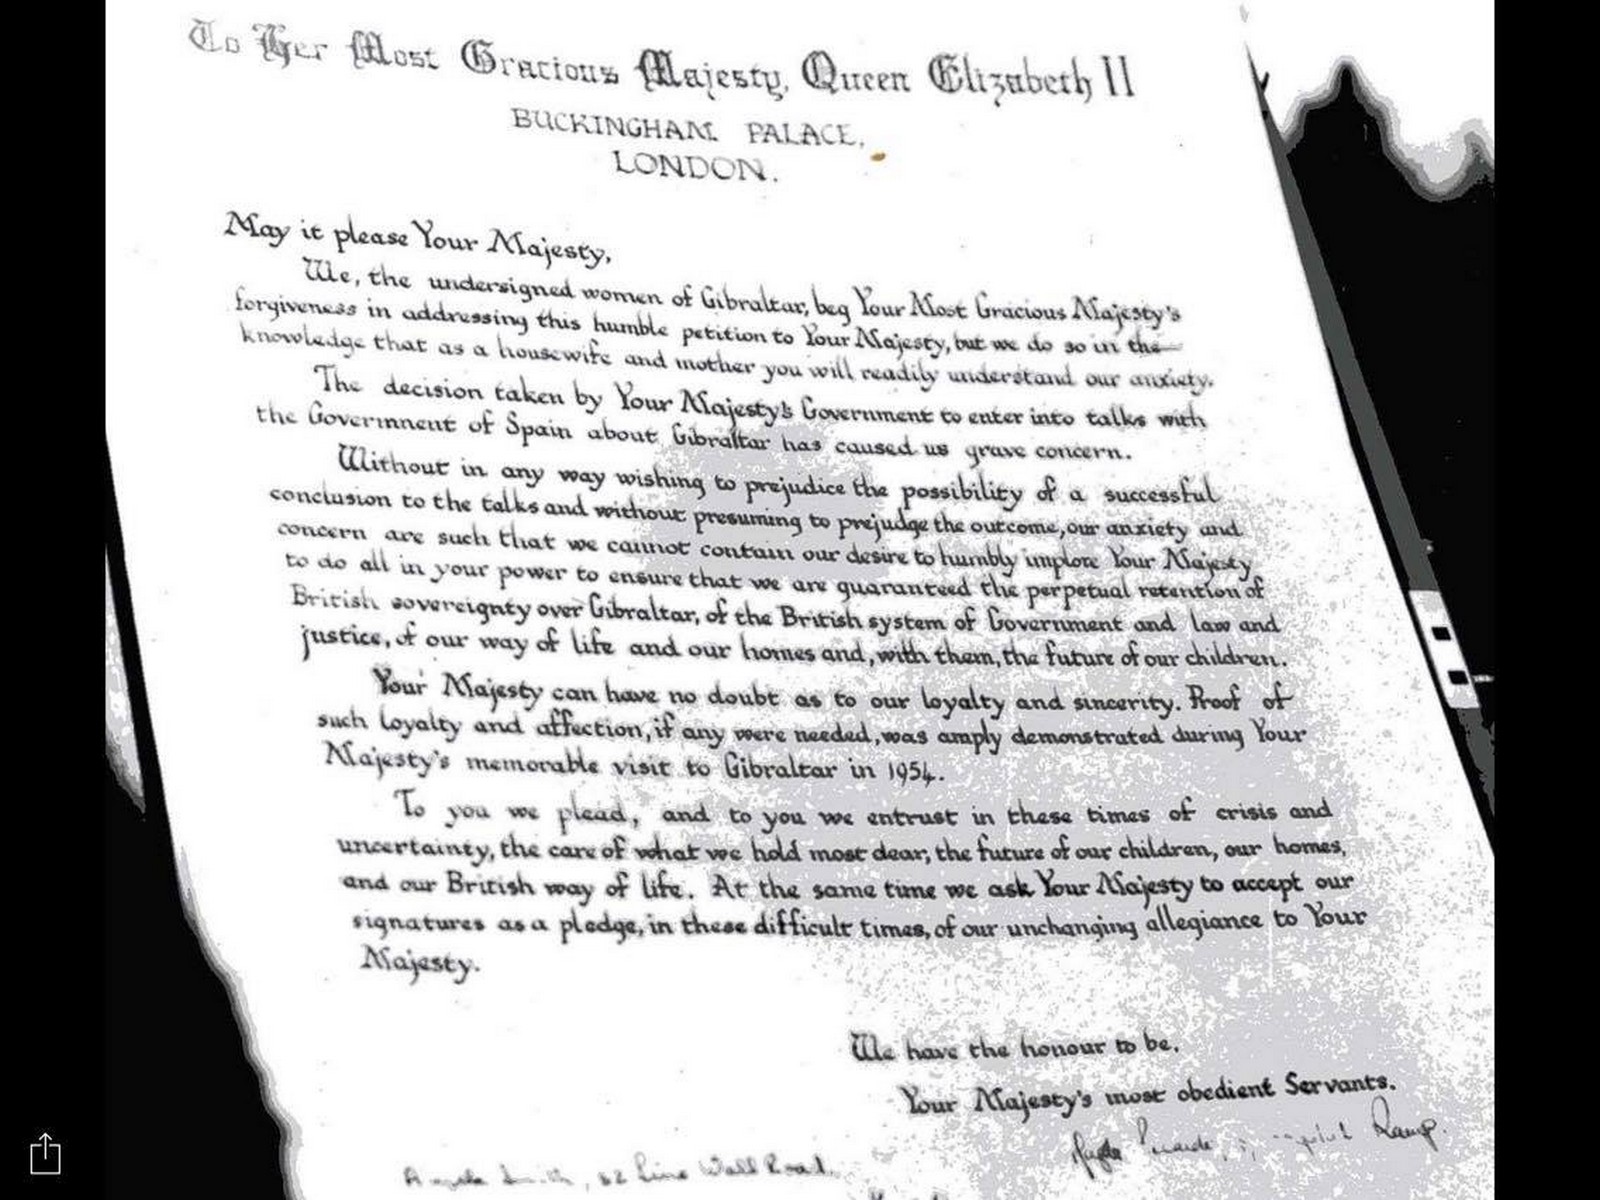 To Her Most Gracious Majesty, Queen Elizabeth II
BUCKINGHAM PALACE,
LONDON.
May it please Your Majesty,
We, the undersigned women of Gibraltar, beg Your Most Gracious Majesty's
forgiveness in addressing this humble petition to Your Majesty, but we do so in the
knowledge that as a housewife and mother you will readily understand our anxiety.
The decision taken by Your Majesty's Government to enter into talks with
the Government of Spain about Gibraltar has caused us grave concern.
Without in any way wishing to prejudice the possibility of a successful
conclusion to the talks and without presuming to prejudge the outcome, our anxiety and
concern are such that we cannot contain our desire to humbly implore Your Majesty
to do all in your power to ensure that we are guaranteed the perpetual retention of
British sovereignty over Gibraltar, of the British system of Government and law and
justice, of our way of life and our homes and, with them, the future of our children.
Your Majesty can have no doubt as to our loyalty and sincerity. Proof of
such loyalty and affection, if any were needed, was amply demonstrated during Your
Majesty's memorable visit to Gibraltar in 1954.
To you we plead, and to you we entrust in these times of crisis and
uncertainty, the care of what we hold most dear, the future of our children, our homes,
and our British way of life. At the same time we ask Your Majesty to accept our
signatures as a pledge, in these difficult times, of our unchanging allegiance to Your
Majesty.
We have the honour to be,
Your Majesty's most obedient Servants.
Ramp.
Angela Smith, 62 Line Wall Road.